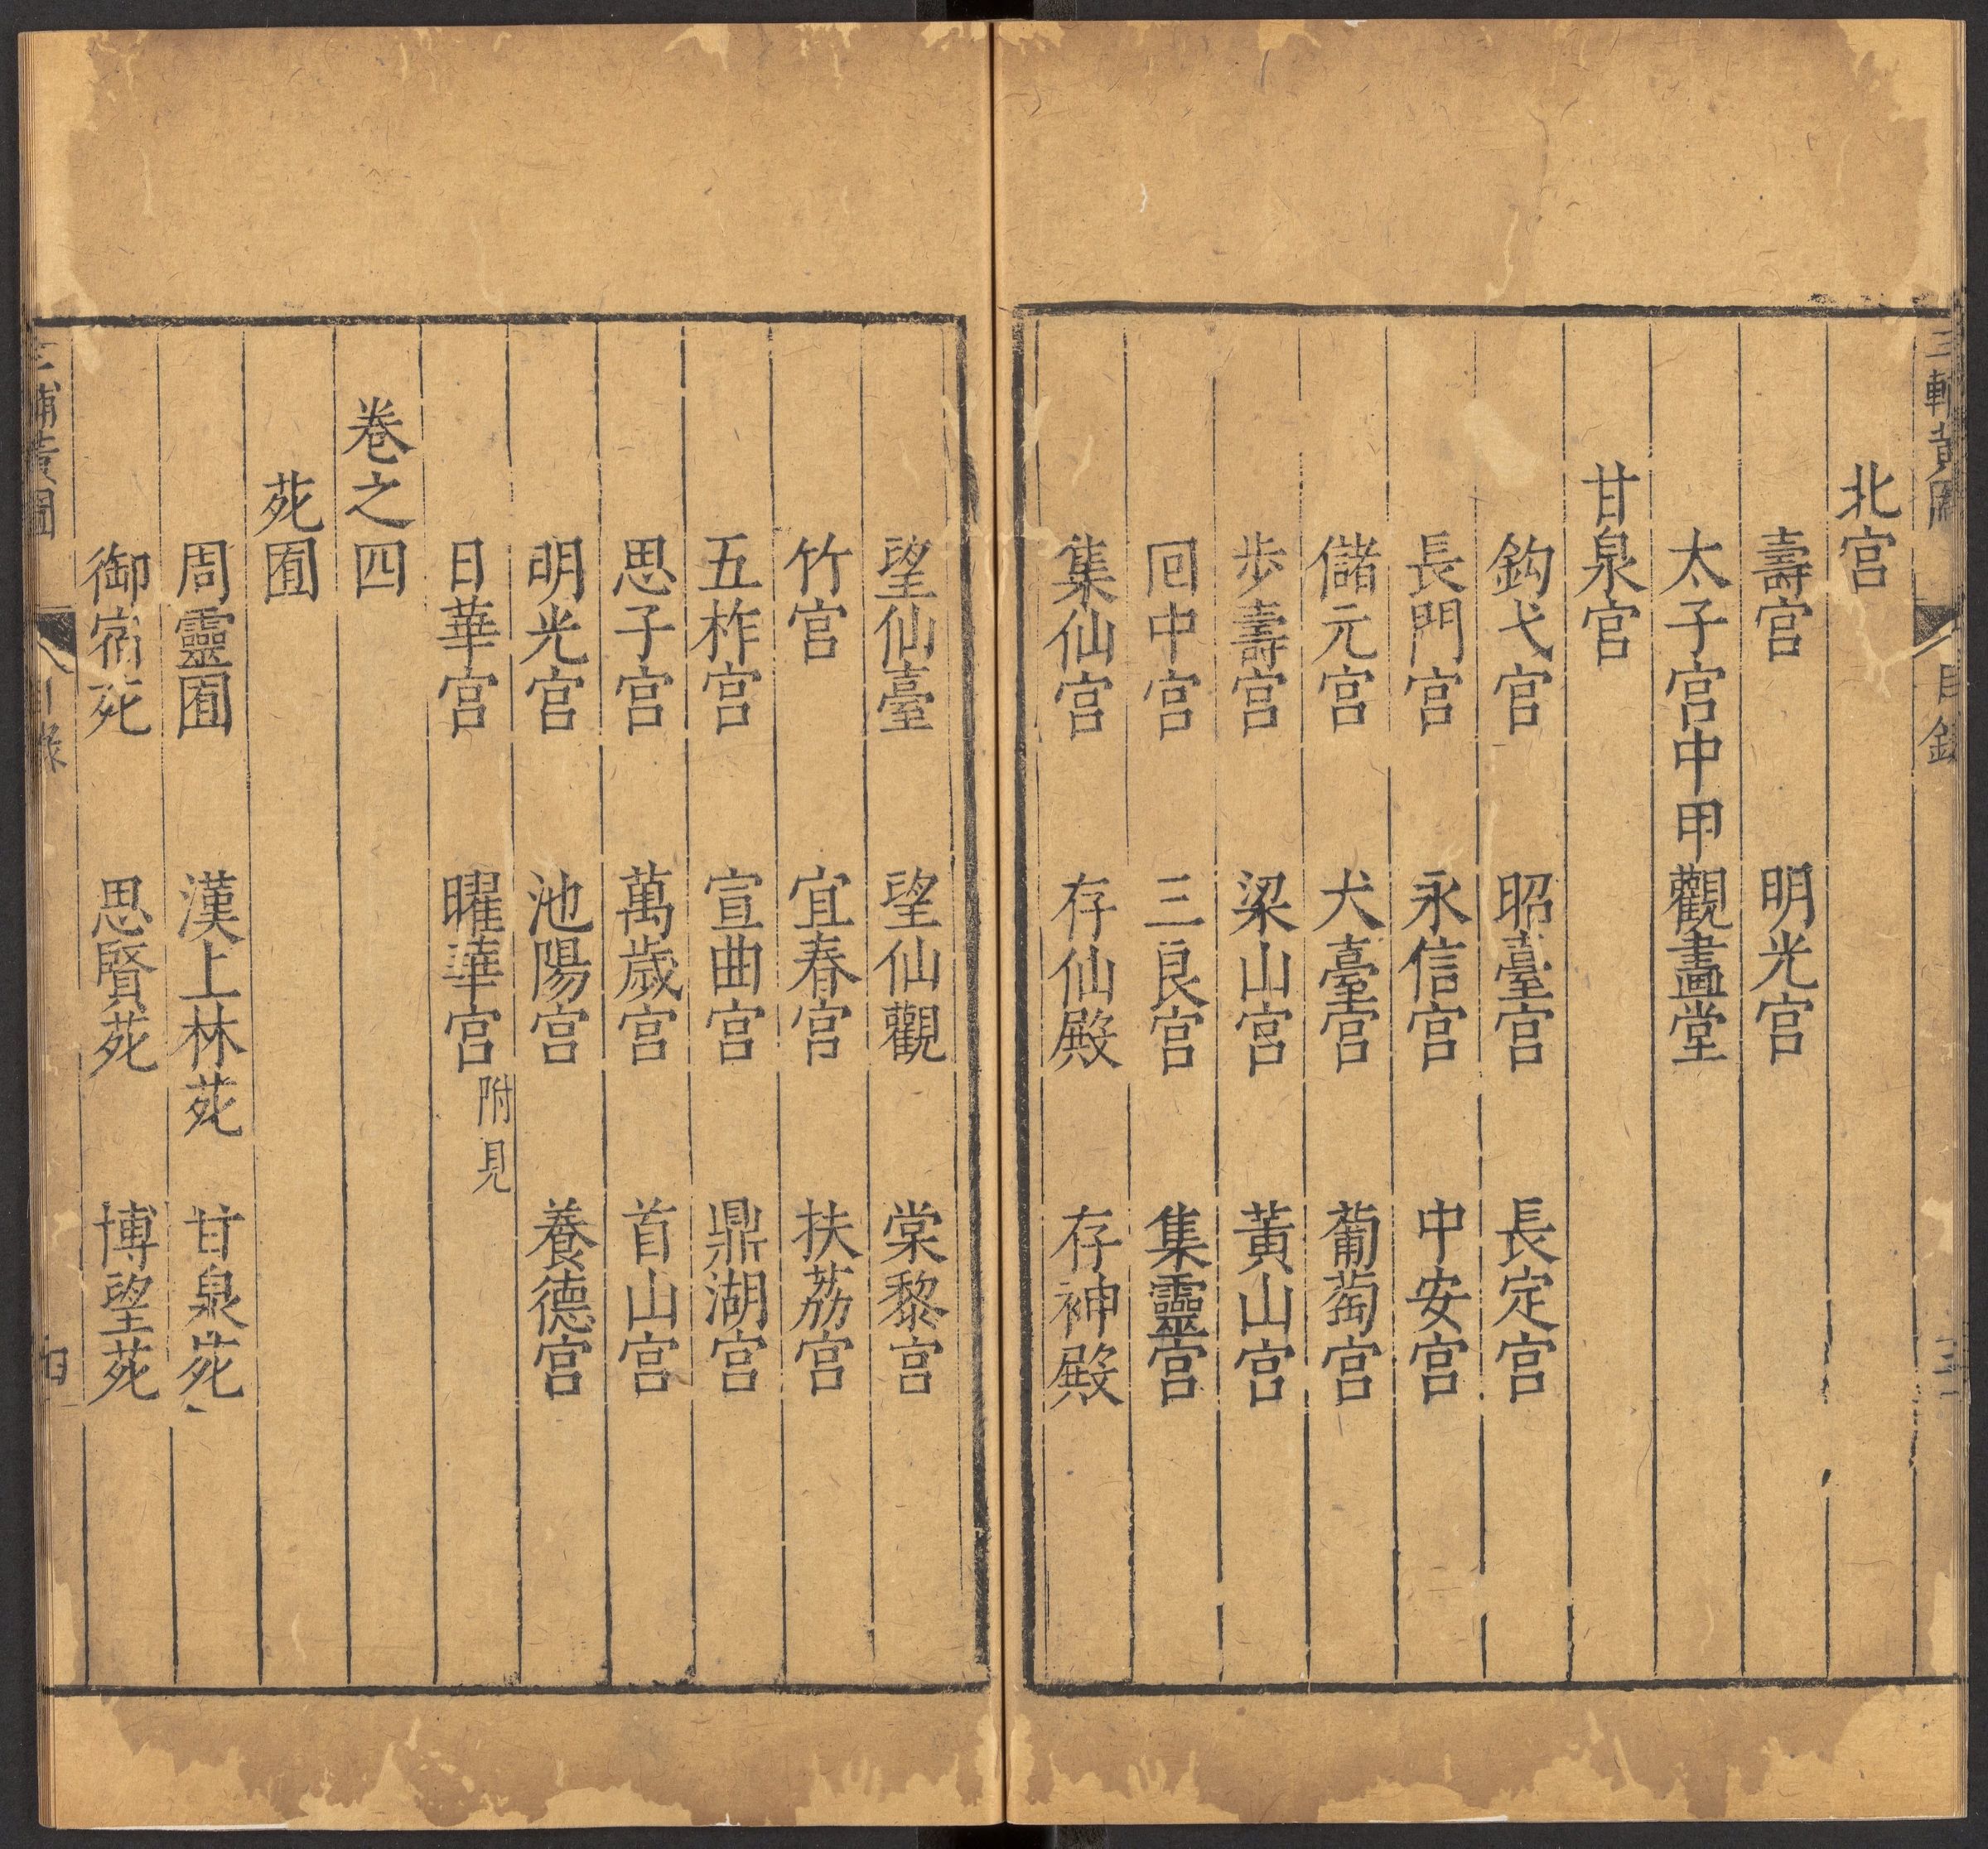 三輔黃圖 目錄 三
北宮
壽宮 明光宮
太子宮中甲觀畫堂
甘泉宮
鈎弋宮 昭臺宮 長定宮
長門宮 永信宮 中安宮
儲元宮 犬臺宮 葡萄宮
步壽宮 梁山宮 黃山宮
回中宮 三良宮 集靈宮
集仙宮 存仙殿 存神殿
望仙臺 望仙觀 棠黎宮
竹宮 宜春宮 扶荔宮
五柞宮 宣曲宮 鼎湖宮
思子宮 萬歲宮 首山宮
明光宮 池陽宮 養德宮
日華宮 曜華宮附見
卷之四
苑囿
周靈囿 漢上林苑 甘泉苑
御宿苑 思賢苑 博望苑
三輔黃圖 目錄 四